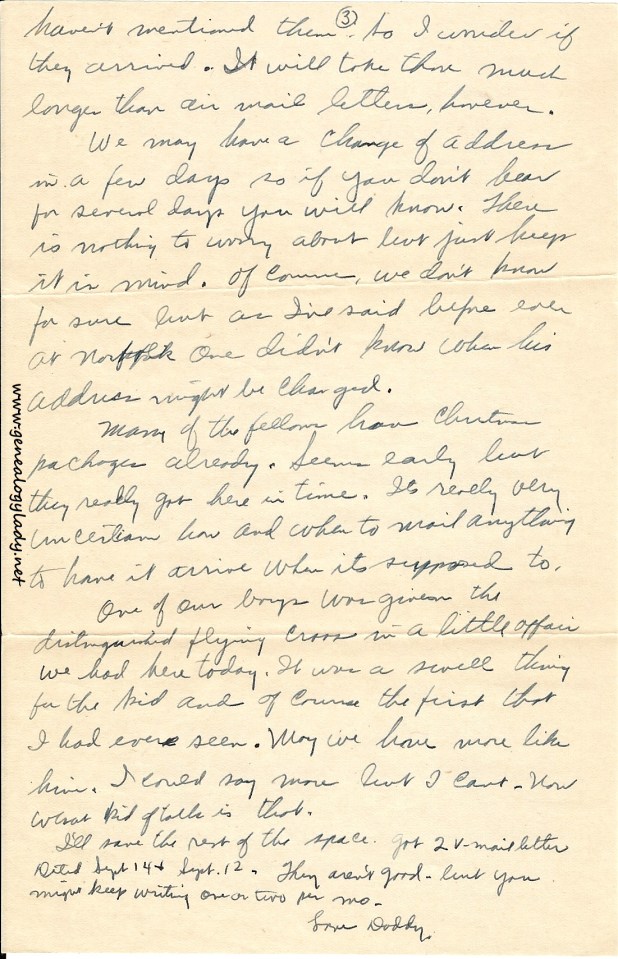 ③
haven't mentioned them. So I wonder if
they arrived. It will take them much
longer than air mail letters, however.
We may have a change of address
in a few days so if you don't hear
for several days you will know. There
is nothing to worry about but just keep
it in mind. Of course, we don't know
for sure but as I've said before even
at Norfolk one didn't know when his
address might be changed.
Many of the fellows have Christmas
packages already. Seems early but
they really got here in time. It's really very
uncertain how and when to mail anything
to have it arrive when its supposed to.
One of our boys was given the
distinguished flying cross in a little affair
we had here today. It was a swell thing
for the kid and of course the first that
I had ever seen. May we have more like
him. I could say more but I can't - Now
what kid of talk is that.
I'll save the rest of the space. Got 2 V-mail letter
Dated Sept 14 & Sept. 12. They aren't good - but you
might keep writing one or two per mo.
Love Daddy.
www.genealogylady.net